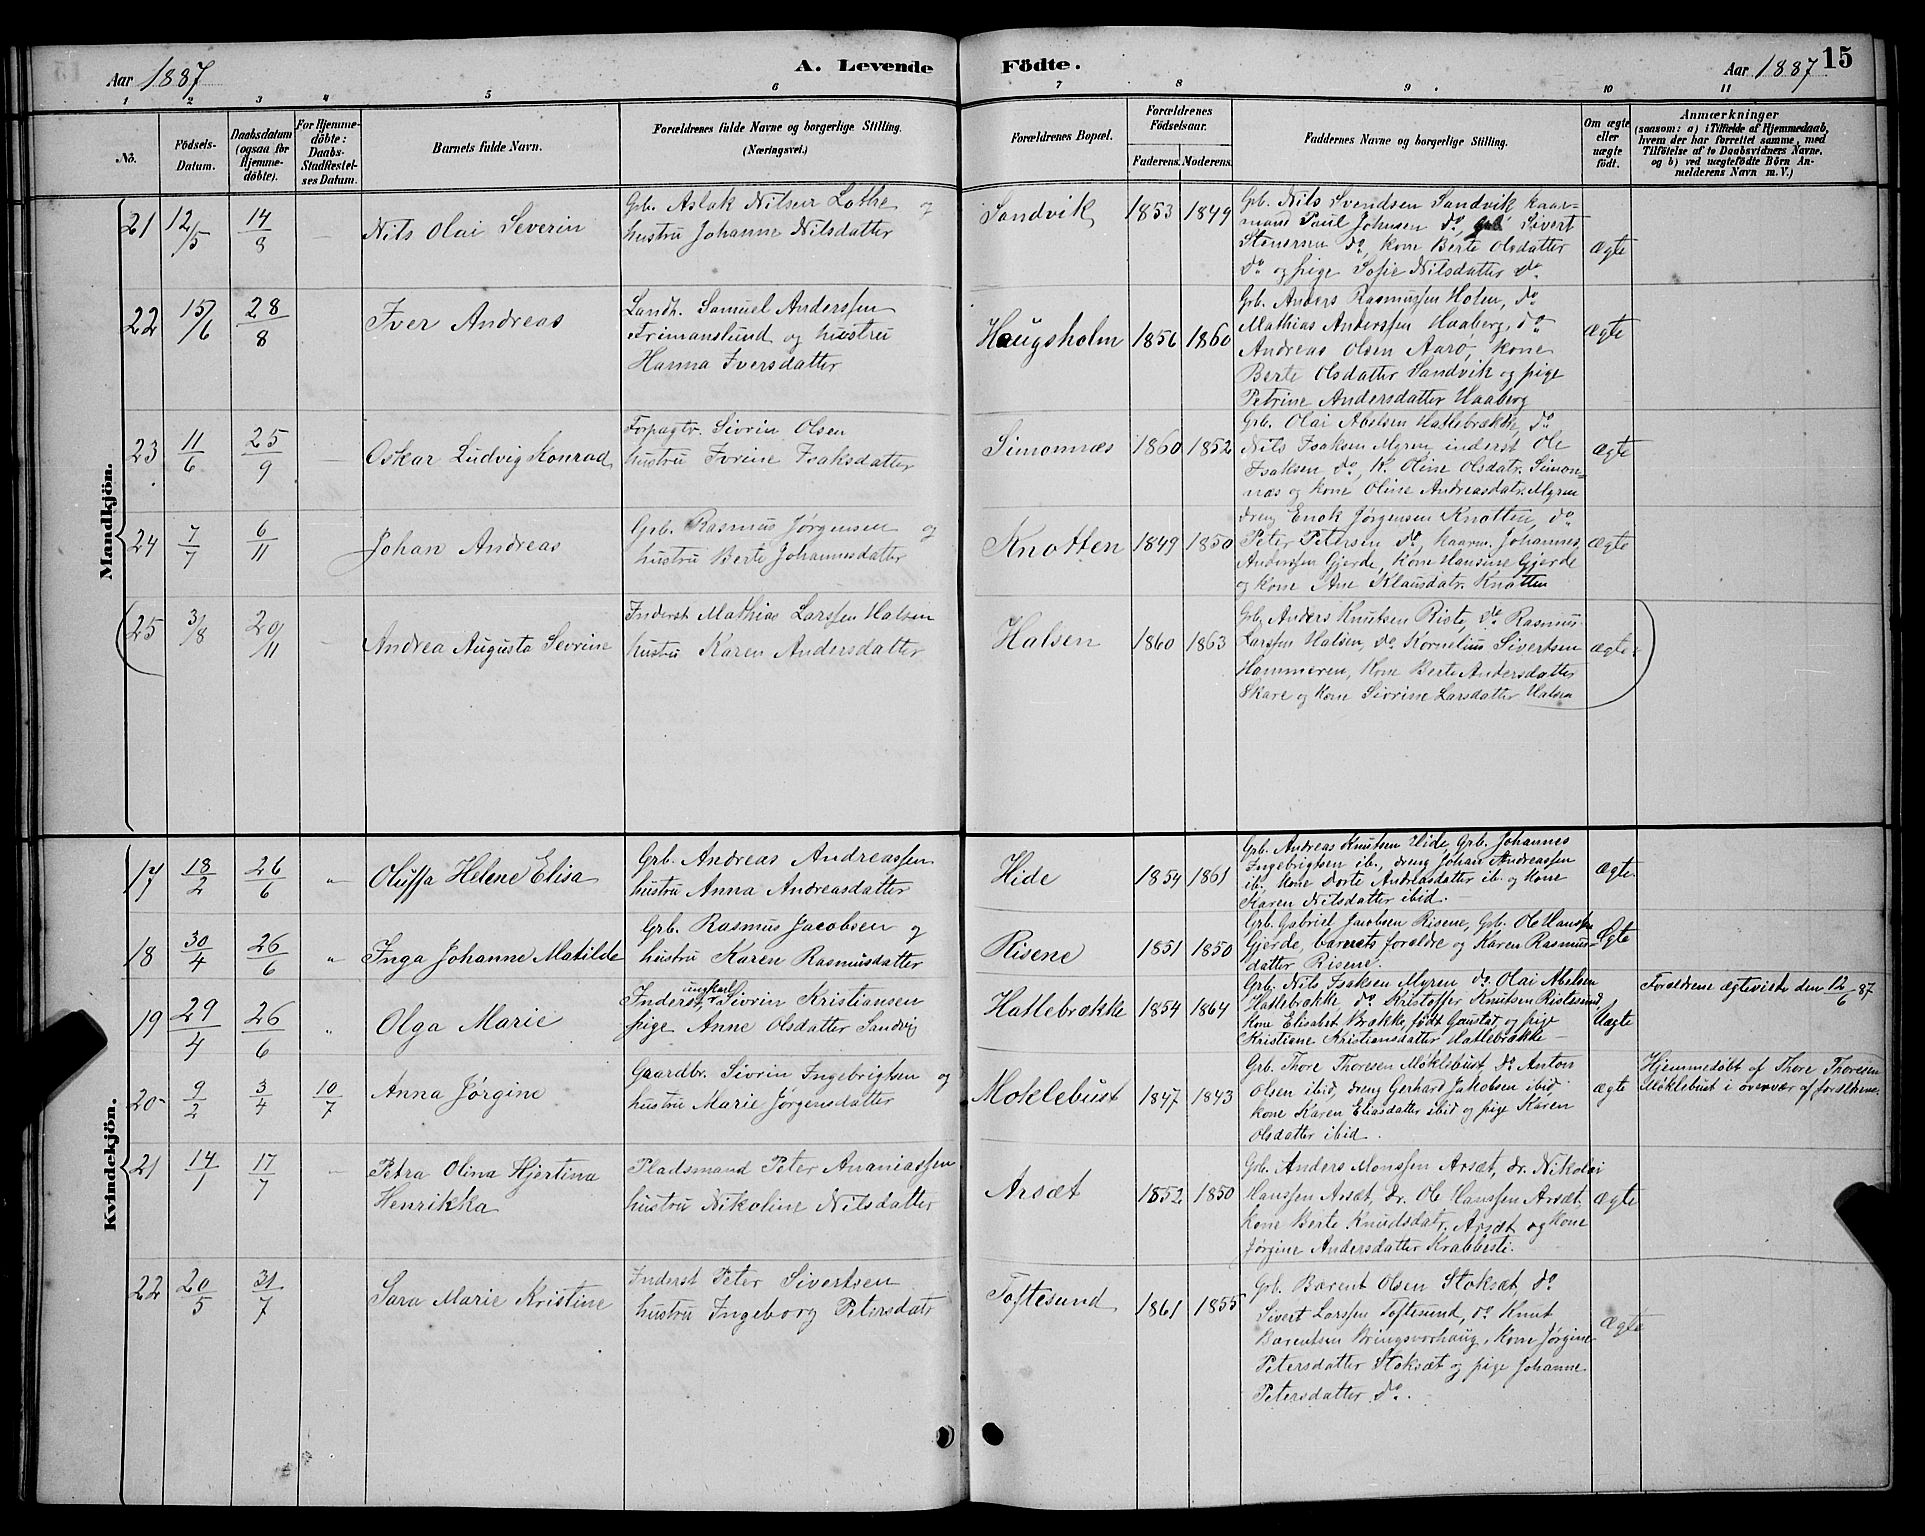 Aar 1887
A. Levende
Födte.
Aar 1887
15
1 2 3 4 5 6 7 8 9 10 11
No.
Födsels-
Datum.
Daabsdatum
(ogsaa for
Hjemme-
döbte).
For Hjemme-
döbte:
Daabs-
Stadfæstel-
ses Datum.
Barnets fulde Navn.
Forældrenes fulde Navne og borgerlige Stilling.
(Næringsvei.)
Forældrenes Bopæl.
Forældrenes
Födselsaar.
Faderens. Moderens.
Faddernes Navne og borgerlige Stilling.
Om ægte
eller
uægte
födt.
Anmærkninger
(saasom: a) i Tilfælde af Hjemmedaab,
hvem der har forrettet samme, med
Tilföielse af to Daabsvidners Navne,
og b) ved uægtefödte Börn An-
melderens Navn m. V.)
Mandkjön.
21 12/5 14/8 — Nils Olai Severin
Grb. Aslak Nilsen Lothe og
hustru Johanne Nilsdatter
Sandvik 1853 1849
Grb. Nils Svendsen Sandvik kaar-
mand Paul Johnsen do, grb Sivert
Stenersen do, kone Berte Olsdatter
do og pige Sofie Nilsdatter do.
Ægte
22 15/6 28/8 Iver Andreas
Landh. Samuel Anderssen
Frimanslund og hustru
Hanna Iversdatter
Haugsholm 1856 1860
Grb. Anders Rasmussen Holen, do
Mathias Anderssen Haaberg, do
Andreas Olsen Aarø, kone
Berte Olsdatter Sandvik og pige
Petrine Andersdatter Haaberg
Ægte
23 11/6 25/9 — Oskar Ludvig Konrad
Forpagtr. Sivrin Olsen
hustru Ivrine Isaksdatter
Simonnæs 1860 1852
Grb. Olai Abelsen Hatlebrække, do
Nils Isaksen Myren, inderst Ole
Isaksen do, K. Oline Olsdatr. Simon=
næs og kone Oline Andreasdatr. Myren
ægte
24 7/7 6/11 Johan Andreas
Grb. Rasmus Jørgensen og
hustru Berte Johannesdatter
Knotten 1849 1850
dreng Enok Jørgensen Knotten, do
Peter Petersen do, kaarm. Johannes
Anderssen Gjerde, kone Hansine Gjerde
og kone Ane Klausdatr. Knotten
ægte
25 3/8 20/11 — Andrea Augusta Sevrine
Inderst Mathias Larssen Halsen
hustru Karen Andersdatter
Halsen 1860 1863
Grb. Anders Knutsen Riste, do Rasmus
Larssen Halsen, do Kornelius Sivertsen
Hammeren, Kone Berte Andersdatter
Skare og kone Sivrine Larsdatter Halsen
ægte
Kvindekjön.
17 18/2 26/6 " Oluffa Helene Elisa
Grb. Andreas Andreassen
hustru Anna Andreasdatter
Hide 1854 1861
Grb. Andreas Knutsen Hide, Grb. Johannes
Ingebrigtsen ib., dreng Johan Andreassen
ib. kone Dorte Andreasdatter ib. og kone
Karen Nilsdatter ibid.
ægte
18 30/4 26/6 " Inga Johanne Matilde
Grb. Rasmus Jacobsen og
hustru Karen Rasmusdatter
Risene 1851 1850
Grb. Gabriel Jacobsen Risene, Grb. Ole Hansen
Gjerde, barnets forældre og Karen Rasmus-
datter Risene.
Ægte
19 29/4 26/6 " Olga Marie
Inderst, ungkarl Sivrin Kristiansen
pige Anne Olsdatter Sandvig
Hatlebrække 1854 1864
Grb. Nils Isaksen Myren do. Olai Abelsen
Hatlebrække do. Kristoffer Knutsen Ristesund
kone Elisabet Brække, født Gaustad, og pige
Kristiane Kristiansdatter Hatlebrække —
Uægte
Forældrene ægteviede den 12/6 87
20 9/2 3/4 10/7 Anna Jørgine
Gaardbr. Sivrin Ingebrigtsen og
hustru Marie Jørgensdatter
Moklebust 1847 1843
Grb. Thore Thoresen Møklebust do Anton
Olsen ibid, dreng Gerhard Jakobsen ibid.
kone Karen Eliasdatter ibid og pige Karen
Olsdatter ibid.
ægte
Hjemmedøbt af Thore Thoresen
Møklebust i overvær af forældrene.
21 14/1 17/7 — Petra Olina Hjertina
Henrikka
Pladsmand Peter Ananiassen
hustru Nikoline Nilsdatter
Arsæt 1852 1850
Grb. Anders Monssen Arsæt, dr. Nikolai
Hanssen Arsæt, dr. Ole Hanssen Arsæt,
kone Berte Knudsdatr. Arsæt og kone
Jørgine Andersdatter Krabbesti.
ægte
22 20/5 31/7 Sara Marie Kristine
Inderst Peter Sivertsen
hustru Ingeborg Petersdatr
Toftesund 1861 1855
Grb. Barent Olsen Stoksæt, do
Sivert Larssen Toftesund, do Knut
Barentsen Bringsvorhaug, kone Jørgine
Petersdatter Stoksæt og pige Johanne
Petersdatter do.
Ægte